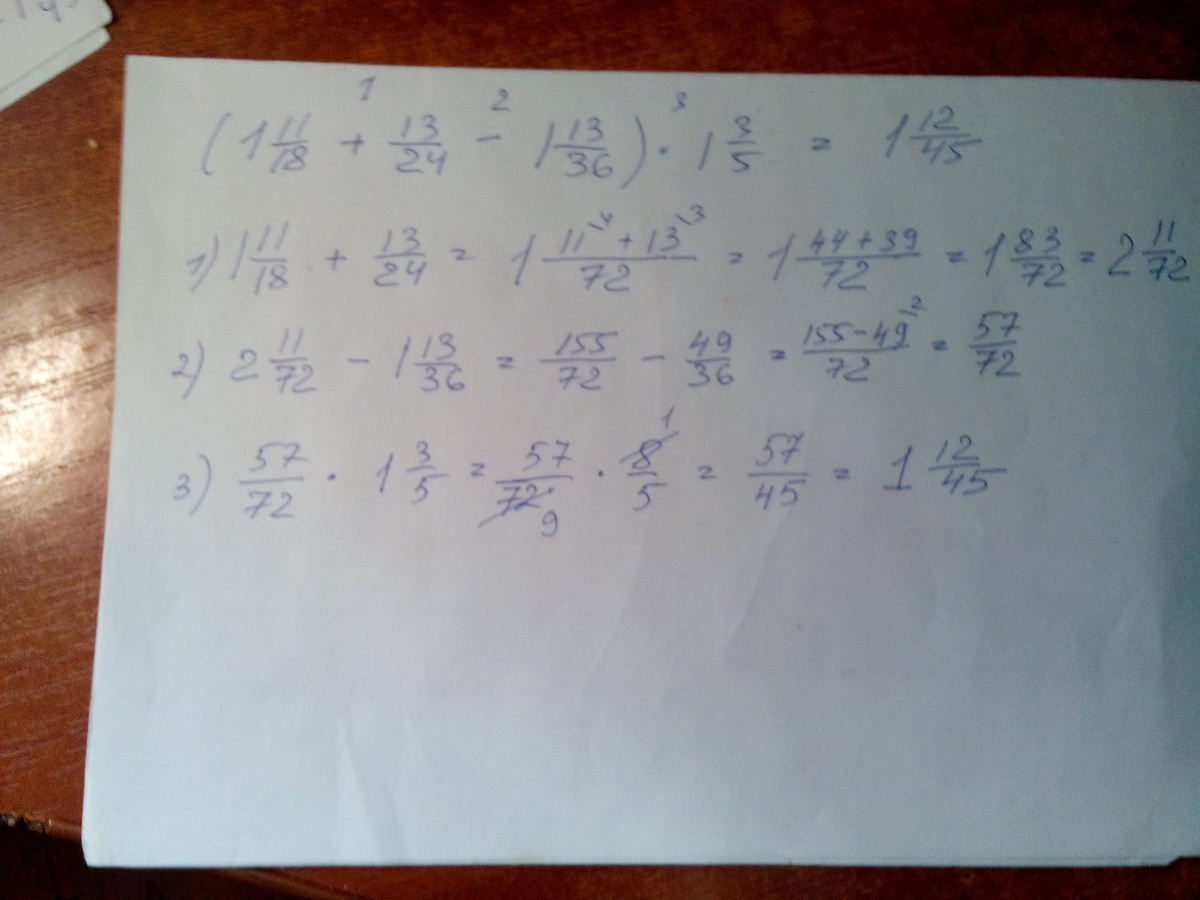 (1 11/18 + 13/24 - 1 13/36) · 1 3/5 = 1 12/45
1) 1 11/18 + 13/24 = 1 (11\4 + 13\3)/72 = 1 (44+39)/72 = 1 83/72 = 2 11/72
2) 2 11/72 - 1 13/36 = 155/72 - 49/36 = (155-49\2)/72 = 57/72
3) 57/72 · 1 3/5 = 57/72 9 · 8 1/5 = 57/45 = 1 12/45